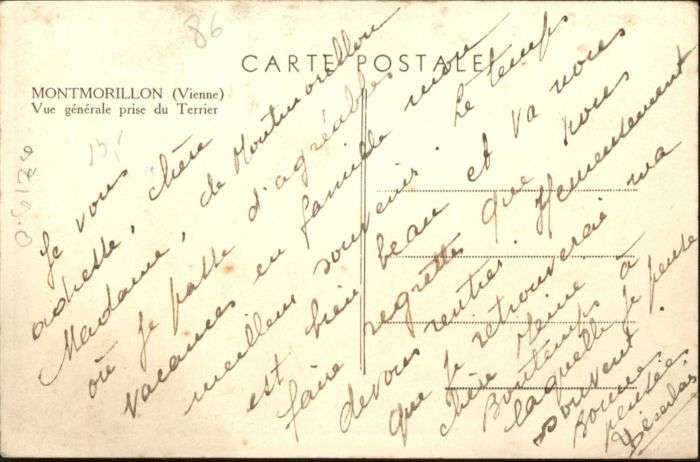 86
CARTE POSTALE
MONTMORILLON (Vienne)
Vue générale prise du Terrier
Je vous
adresse, chère
Madame, de Montmorillon
où je passe d'agréables
vacances en famille mon
meilleur souvenir. Le temps
est bien beau et va nous
faire regretter que nous
devons rentrer. Heureusement
que je retrouverai ma
chère Reine
Bontemps à
laquelle je pense
souvent.
Bonne
pensée